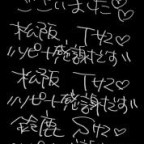 ございました♡♡
松阪、T42♡
"リピート感謝です"
松阪 T42
"リピート感謝です"
鈴鹿 S42♡